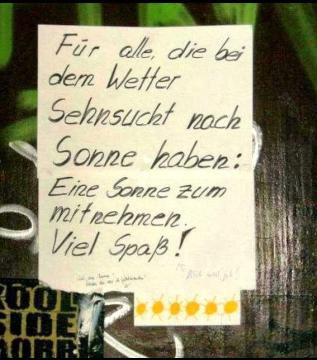 Für alle, die bei
dem Wetter
Sehnsucht nach
Sonne haben:
Eine Sonne zum
mitnehmen.
Viel Spaß!
KOOL
SIDE